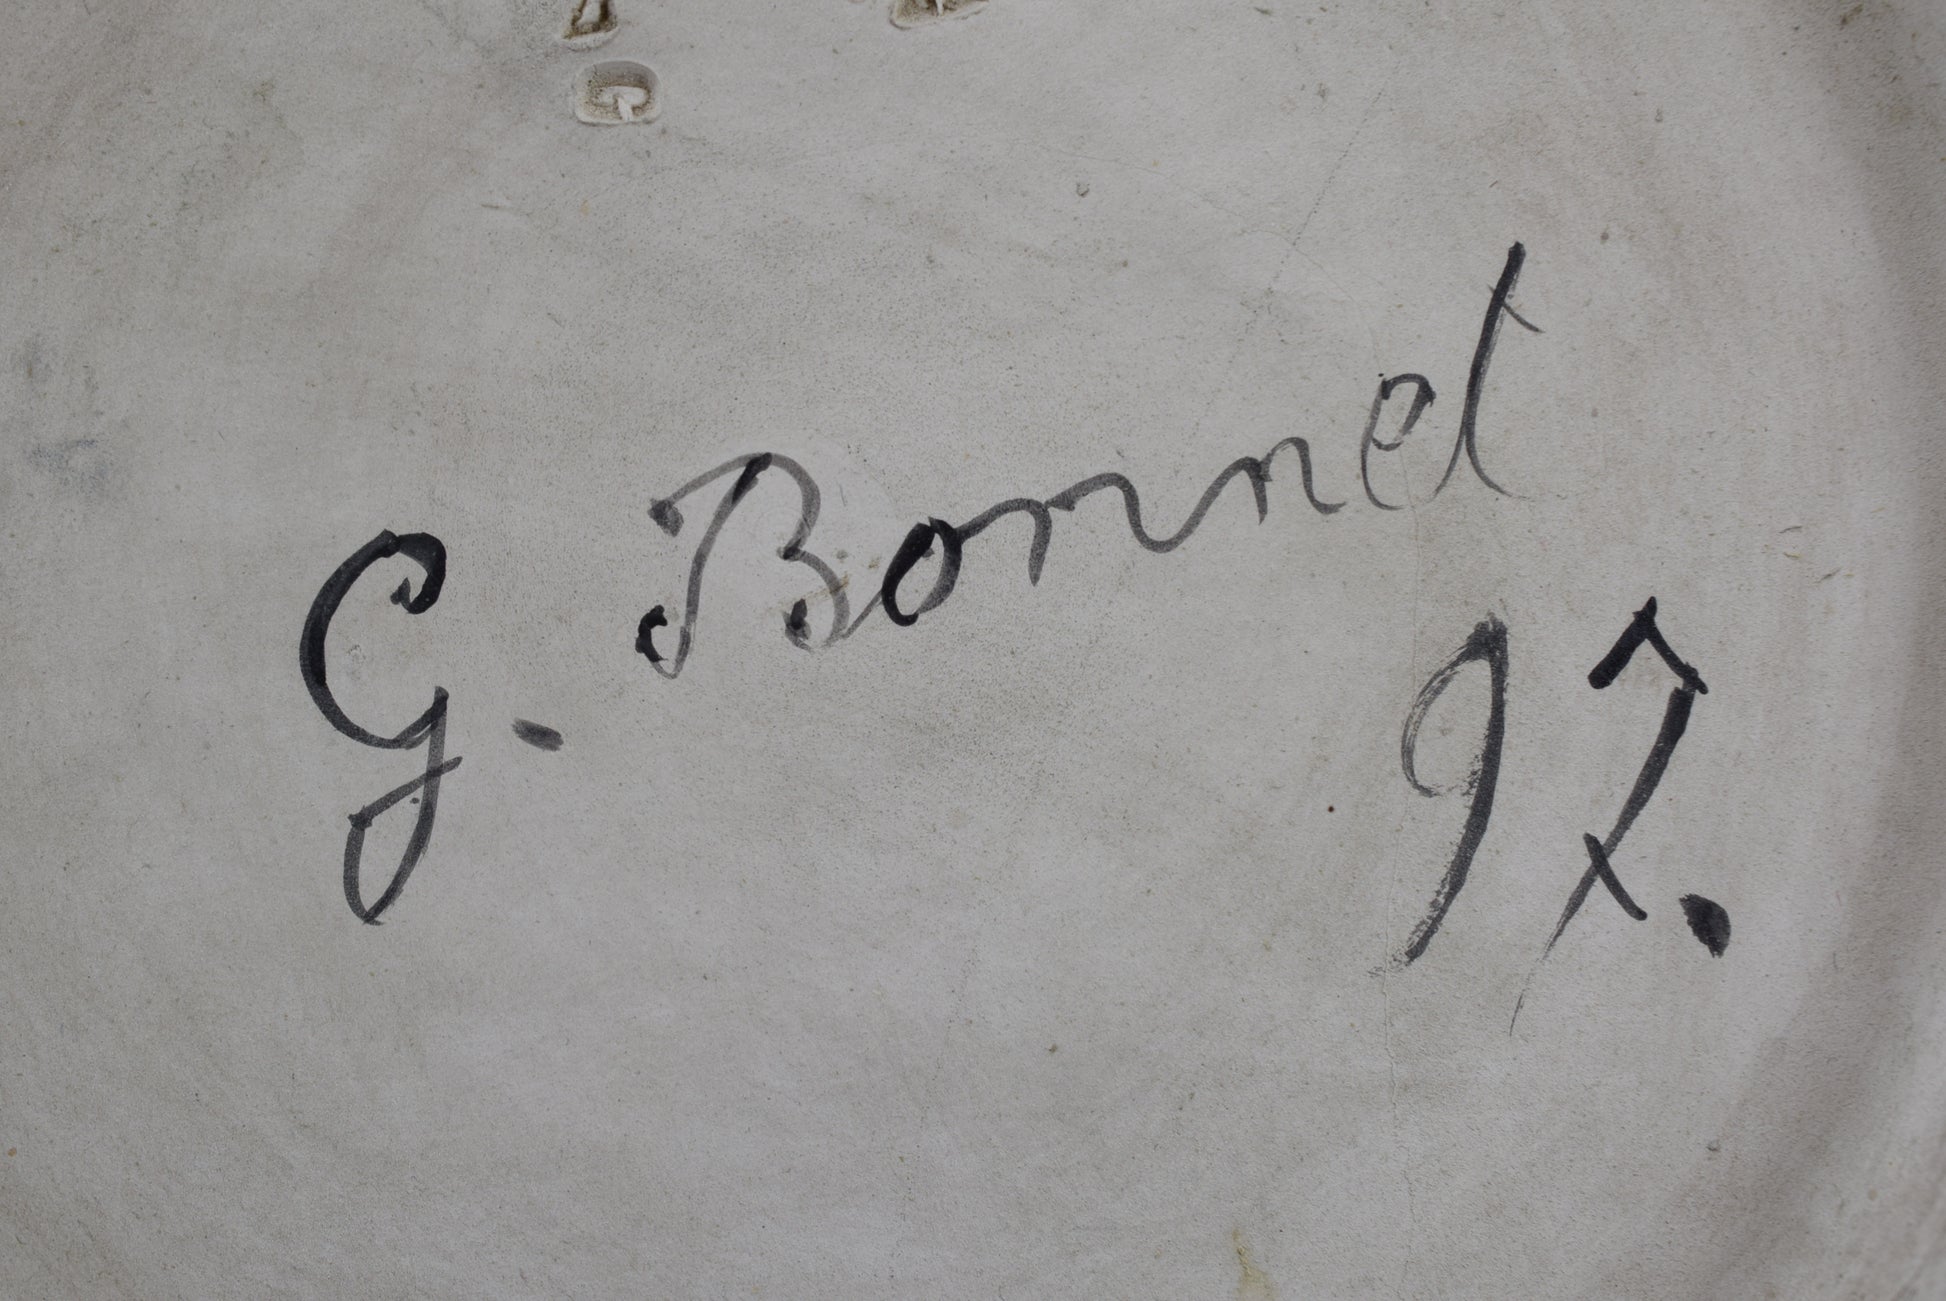 G
G. Bonnet
97.